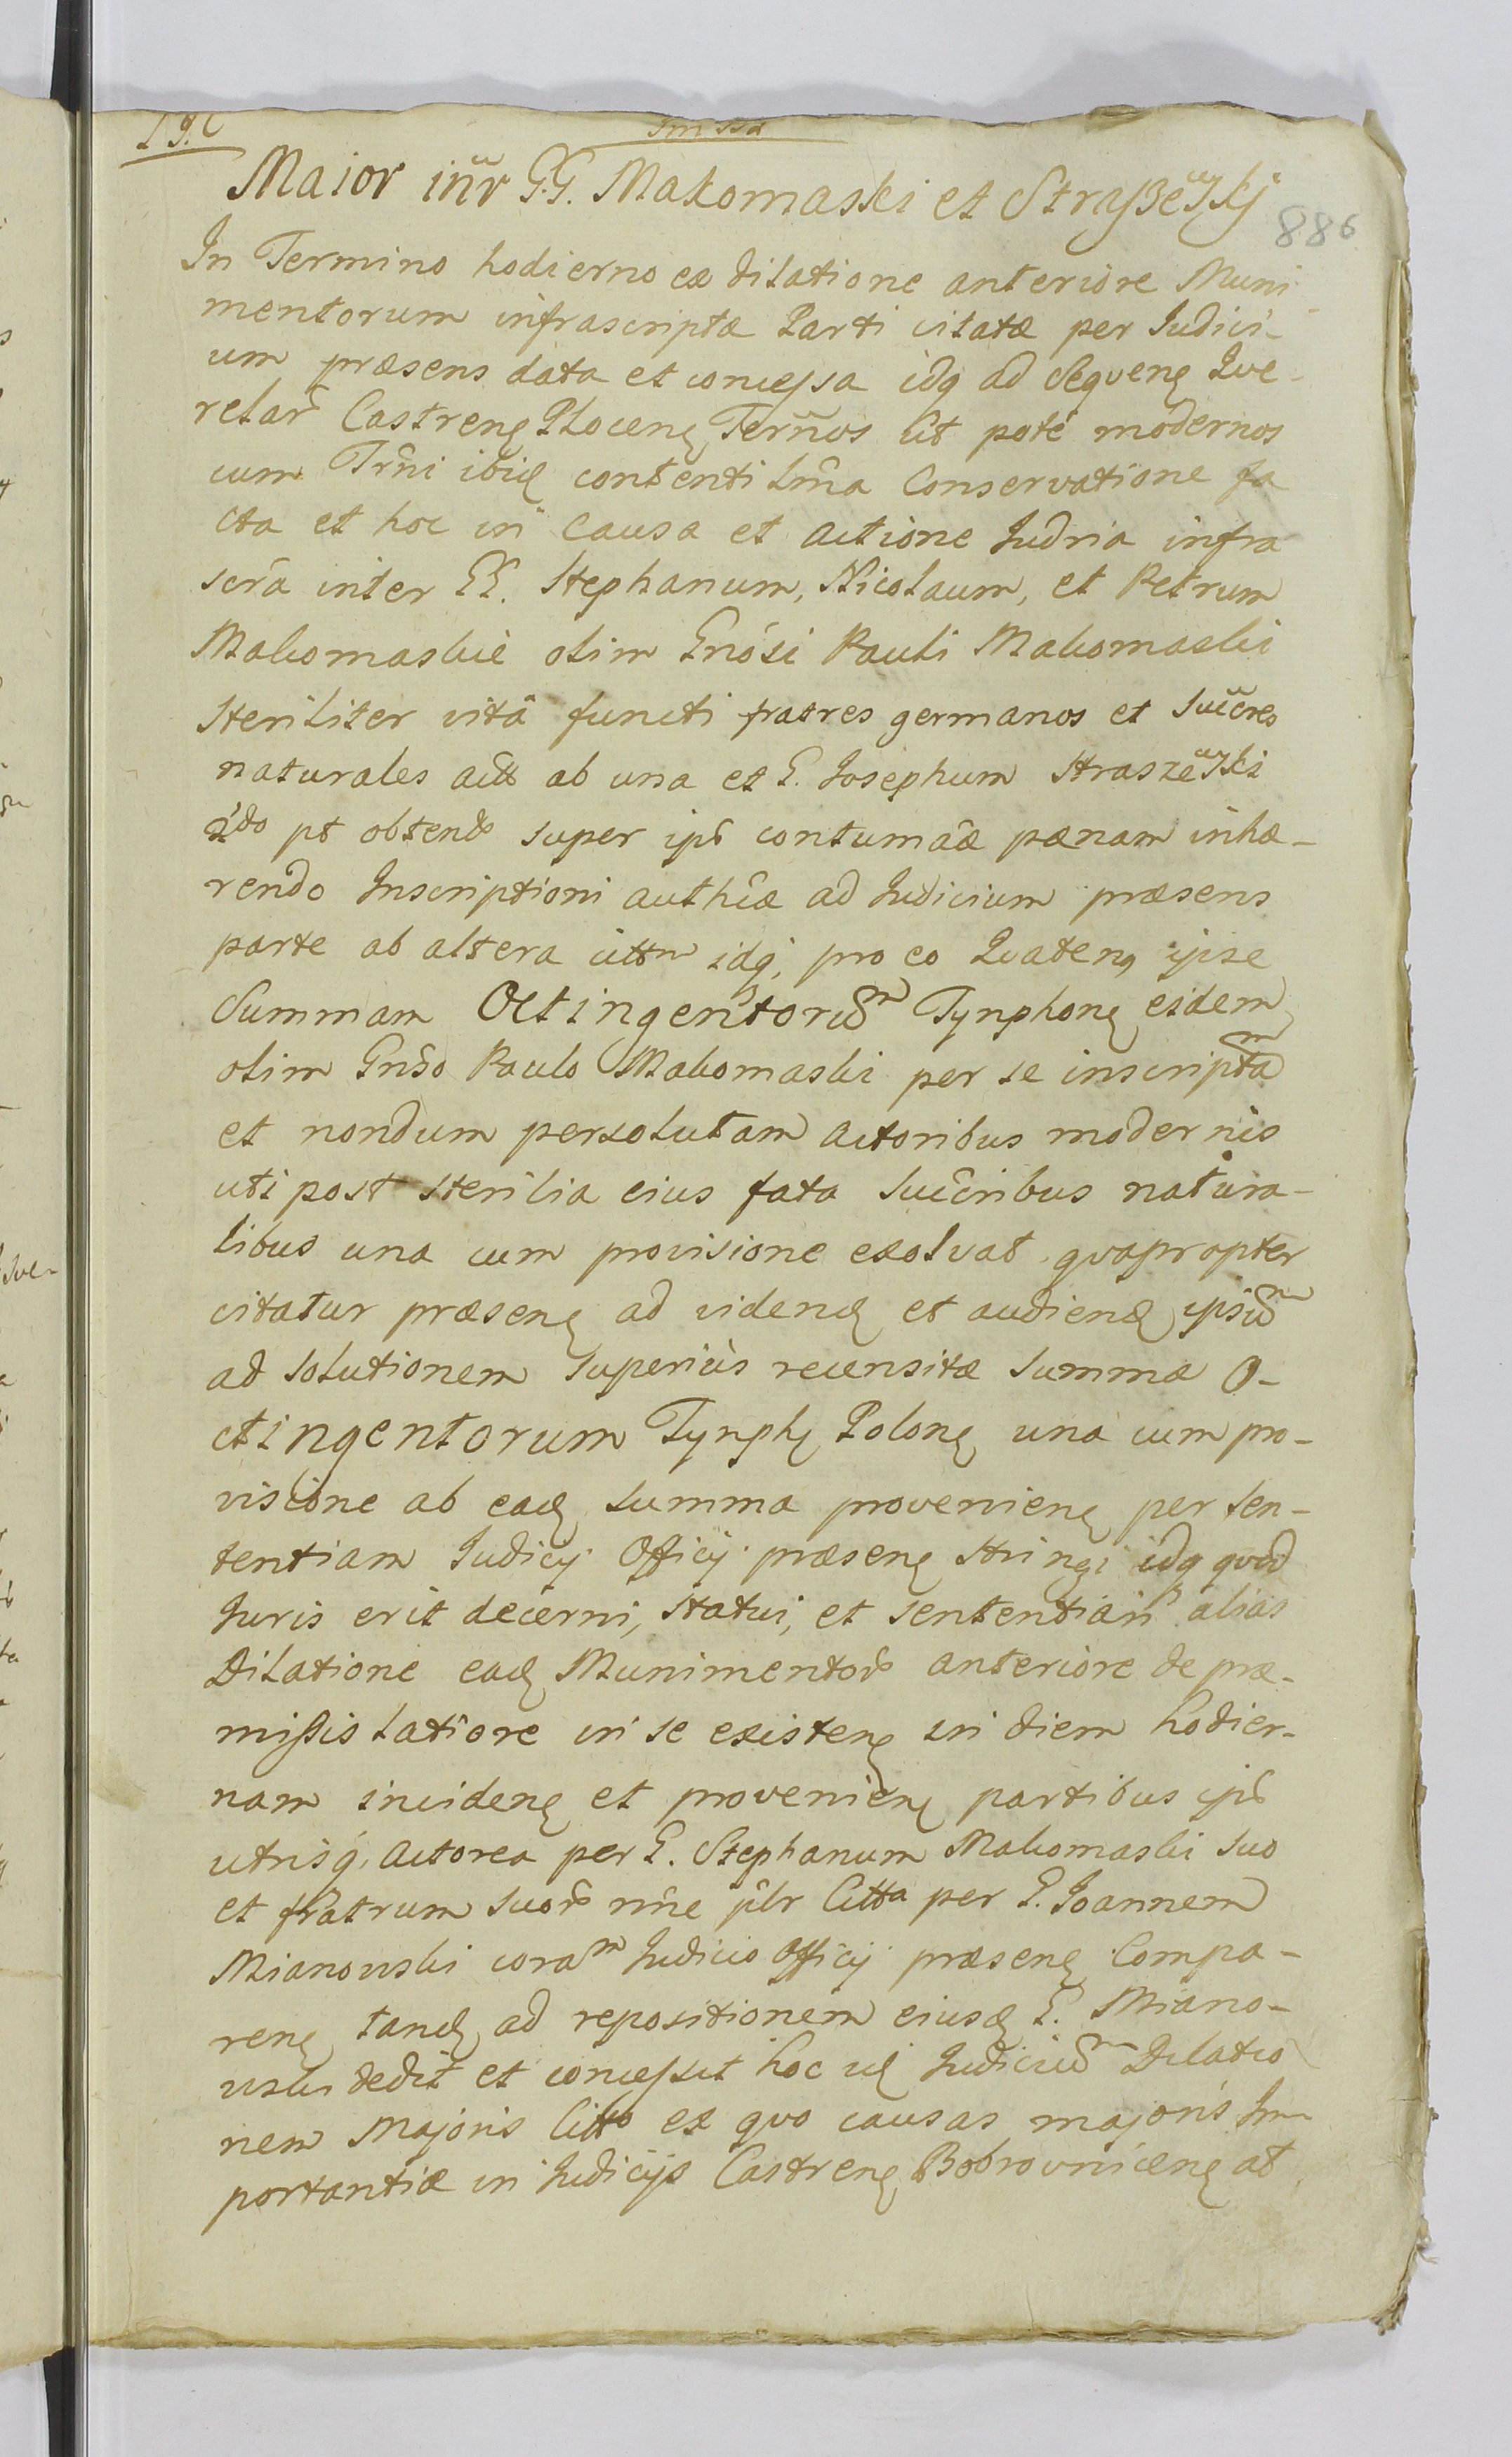 Maior inr̃ GG. Makomaski et Straszewskj
886
In Termino hodierno ex dilatione anteriore Muni
mentorum infrascriptæ Parti citatæ per Iudici-
um præsens data et concessa idq ad seqvenę Qve-
relarũ Castrenę Plocenę Termĩos ut pote modernos
cum Trm̃i ibidę contenti Conservatione fa
cta et hoc in causa et actione Iudria infra
scrã inter GG. Stephanum, Nicolaum, et Petrum
Makomaskie olim Gnõsi Pauli Makomaski
steriliter vitâ functi fratres germanos et Succres
naturales act ab una et G. Iosephum Straszewski
2do pt obtend super ips contumãæ pænam inhæ-
rendo Inscriptioni authcæ ad Iudicium præsens
parte ab altera citt idq pro eo Qvatenq ipse
Summam Octingentorum Tynphonę eidem
olim Gnso Paulo Makomaski per se inscriptam
et nondum persolutam actoribus modernis
uti post sterilia eius fata Succribus natura-
libus una cum provisione exolvat qvapropter
citatur præsenę ad videndę et audiendę ipsum
ad solutionem superiùs recensitæ summæ O-
ctingentorum Tynphę Polonę una cum pro-
visione ab eadę summa provenienę per sen-
tentiam Iudicij Officij præsenę stringi idq qvod
Iuris erit decerni, statui, et sententiari alias
Dilatione eadę Munimentorũ anteriore de præ-
missis latiore in se existenę in diem hodier-
nam incidenę et provenienę partibus ips
utrisq, Actorea per G. Stephanum Makomaski suo
et fratrum suorũ nñe Citta per G. Joannem
Mianowski coram Iudicio Officij præsenę Compa-
renę tandę ad repositionem eiusdę G. Miano-
wski dedit et concessit hoc idę Iudicium Dilatio
nem Majoris Citto ex quo causas majoris Im-
portantiæ in Iudicijs Castrenę Bobrovnicenę at